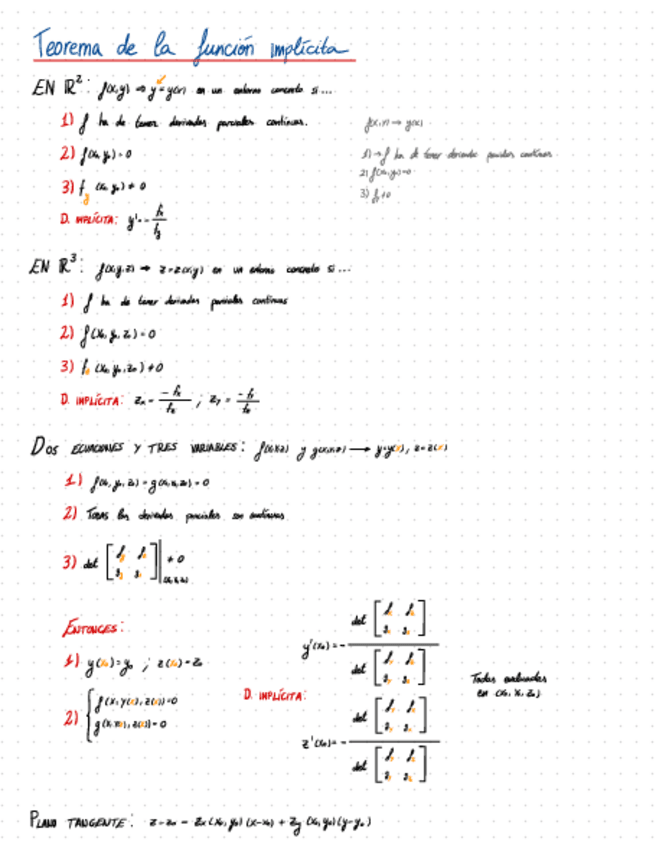 Teorema de la función implícita
EN ℝ²: f(x,y) ⇒ y=y(x) en un entorno concreto si...
1) f ha de tener derivadas parciales continuas.
2) f(x₀,y₀)=0
3) f_y (x₀,y₀)≠0
D. IMPLÍCITA: y'=-f_x/f_y
f(x,y) → y(x)
1) → f ha de tener derivadas parciales continuas.
2) f(x₀,y₀)=0
3) f_y≠0
EN ℝ³: f(x,y,z) → z=z(x,y) en un entorno concreto si...
1) f ha de tener derivadas parciales continuas
2) f(x₀,y₀,z₀)=0
3) f_z (x₀,y₀,z₀)≠0
D. IMPLÍCITA: z_x=-f_x/f_z ; z_y=-f_y/f_z
DOS ECUACIONES Y TRES VARIABLES: f(x,y,z) y g(x,y,z) → y=y(x), z=z(x)
1) f(x₀,y₀,z₀)=g(x₀,y₀,z₀)=0
2) TODAS las derivadas parciales son continuas
3) det [f_y f_z
g_y g_z] ≠0
(x₀,y₀,z₀)
ENTONCES:
1) y(x₀)=y₀ ; z(x₀)=z₀
2) { f(x,y(x),z(x))=0
g(x,y(x),z(x))=0
D. IMPLÍCITA:
y'(x₀)=-
det
det
z'(x₀)=-
det
det
Todas evaluadas
en (x₀,y₀,z₀)
PLANO TANGENTE: z-z₀ = z_x(x₀,y₀)(x-x₀) + z_y(x₀,y₀)(y-y₀)